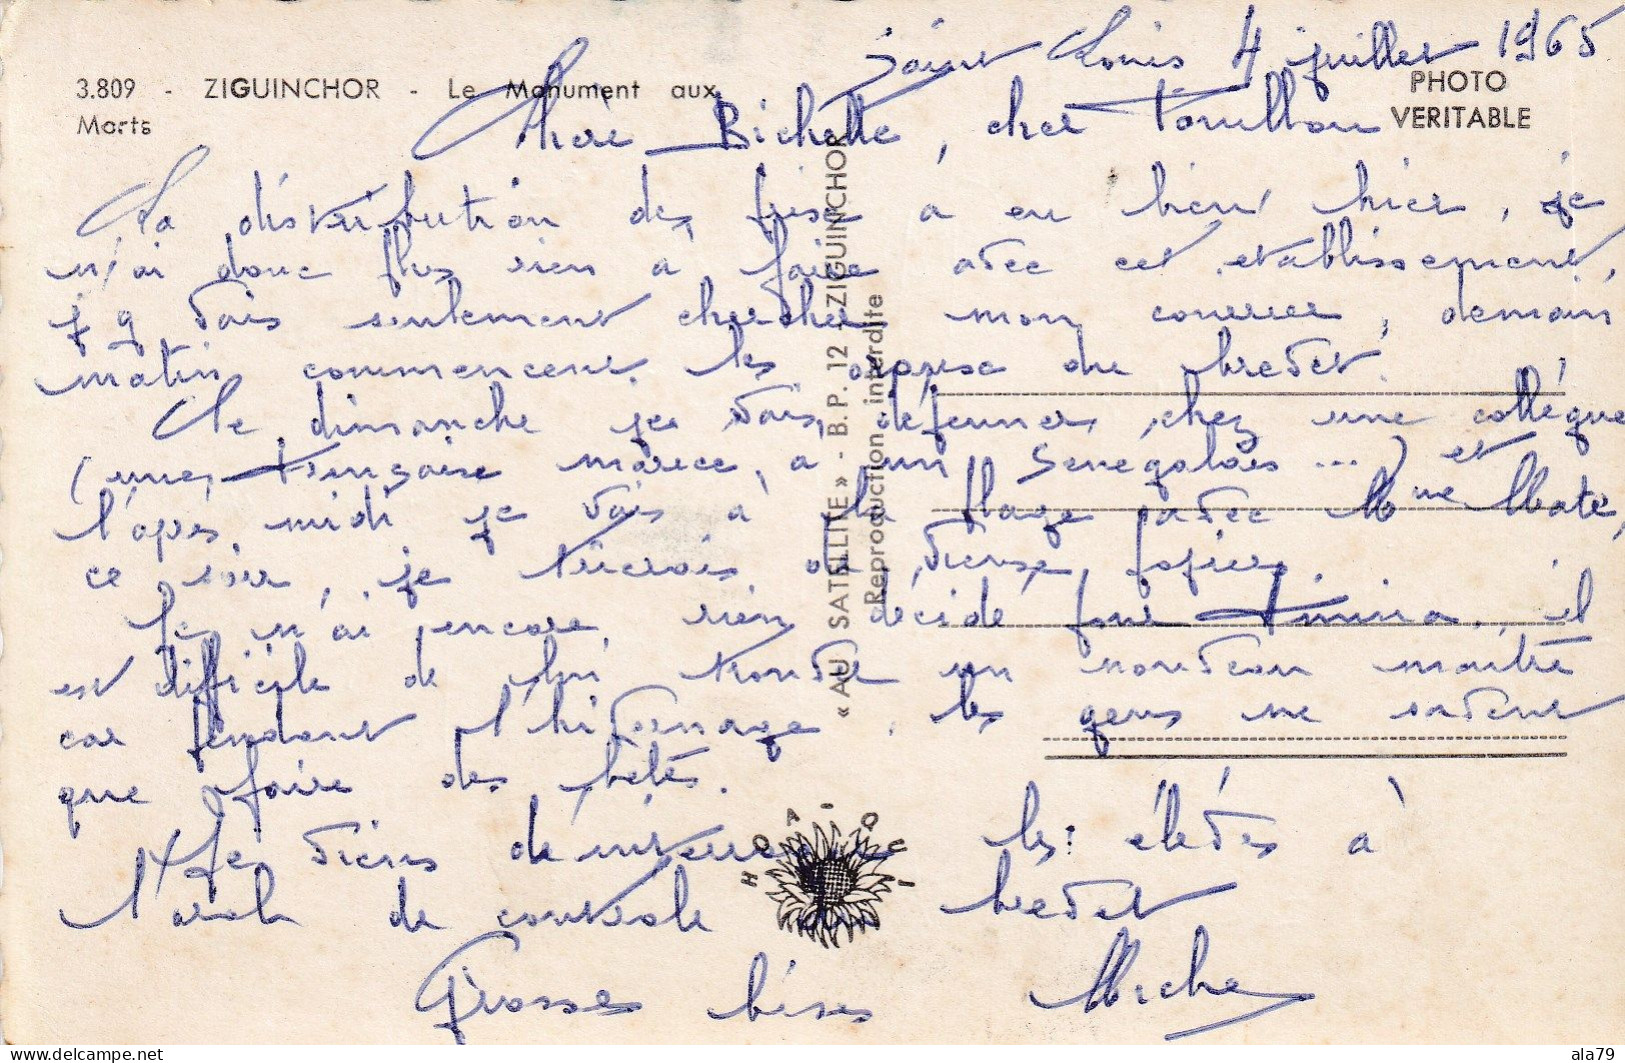 Saint Louis 4 juillet 1965
3.809 - ZIGUINCHOR - Le Monument aux
Morts
PHOTO
VERITABLE
Chère Bichette, cher
La distribution des prix a eu lieu hier, je
n'ai donc plus rien à faire avec cet etablissement,
j'y vais seulement chercher mon courrier, demain
matin commencent les du brevet.
Ce dimanche je vais déjeuner chez une collègue
(une française mariée à un Senegalais ...) et
l'après midi je vais à la plage avec Mme
ce soir, je de vieux papiers.
Je n'ai encore rien décidé pour il
est difficile de lui trouver un nouveau maitre
car pendant l'hivernage, les gens ne savent
que faire des bêtes.
Je viens de les élèves à
l'oral de controle du brevet
Grosses bises Miche
« AU SATELLITE » - B.P. 12 - ZIGUINCHOR
Reproduction interdite
HOA-QUI
ala79